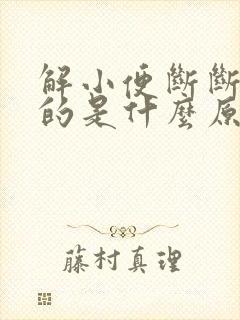 解小便斷斷
的是什麼原
藤村真理